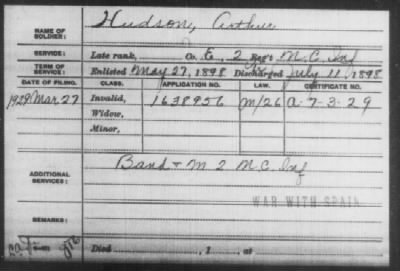 NAME OF SOLDIER: Hudson, Arthur
SERVICE: Late rank, Co. E, 2 Reg't N.C. Inf
TERM OF SERVICE: Enlisted May 27, 1898 Discharged July 11 1898
DATE OF FILING. CLASS. APPLICATION NO. LAW. CERTIFICATE NO.
1929 Mar 27 Invalid, 1638956 M/26 A-7-3-29
Widow,
Minor,
ADDITIONAL SERVICES: Band + M 2 N.C. Inf
WAR WITH SPAIN
REMARKS:
Died , 1 , at